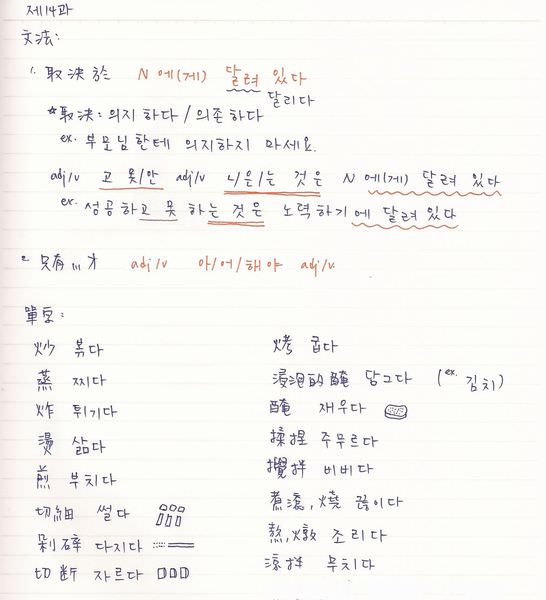 제14과
文法:
1. 取決於 N 에(게) 달려 있다
달리다
☆取決: 의지 하다 / 의존 하다
ex. 부모님 한테 의지하지 마세요.
adj/v 고 못/안 adj/v 니은/는 것은 N 에(게) 달려 있다
ex. 성공 하고 못 하는 것은 노력하기에 달려 있다
2. 只有...才 adj/v 아/어/해야 adj/v
單字:
炒 볶다
蒸 찌다
炸 튀기다
燙 삶다
煎 부치다
切細 썰다
剁碎 다지다
切斷 자르다
烤 굽다
浸泡的醃 담그다 (ex. 김치)
醃 재우다
揉捏 주무르다
攪拌 비비다
煮滾,燒 끓이다
熬,燉 조리다
涼拌 무치다